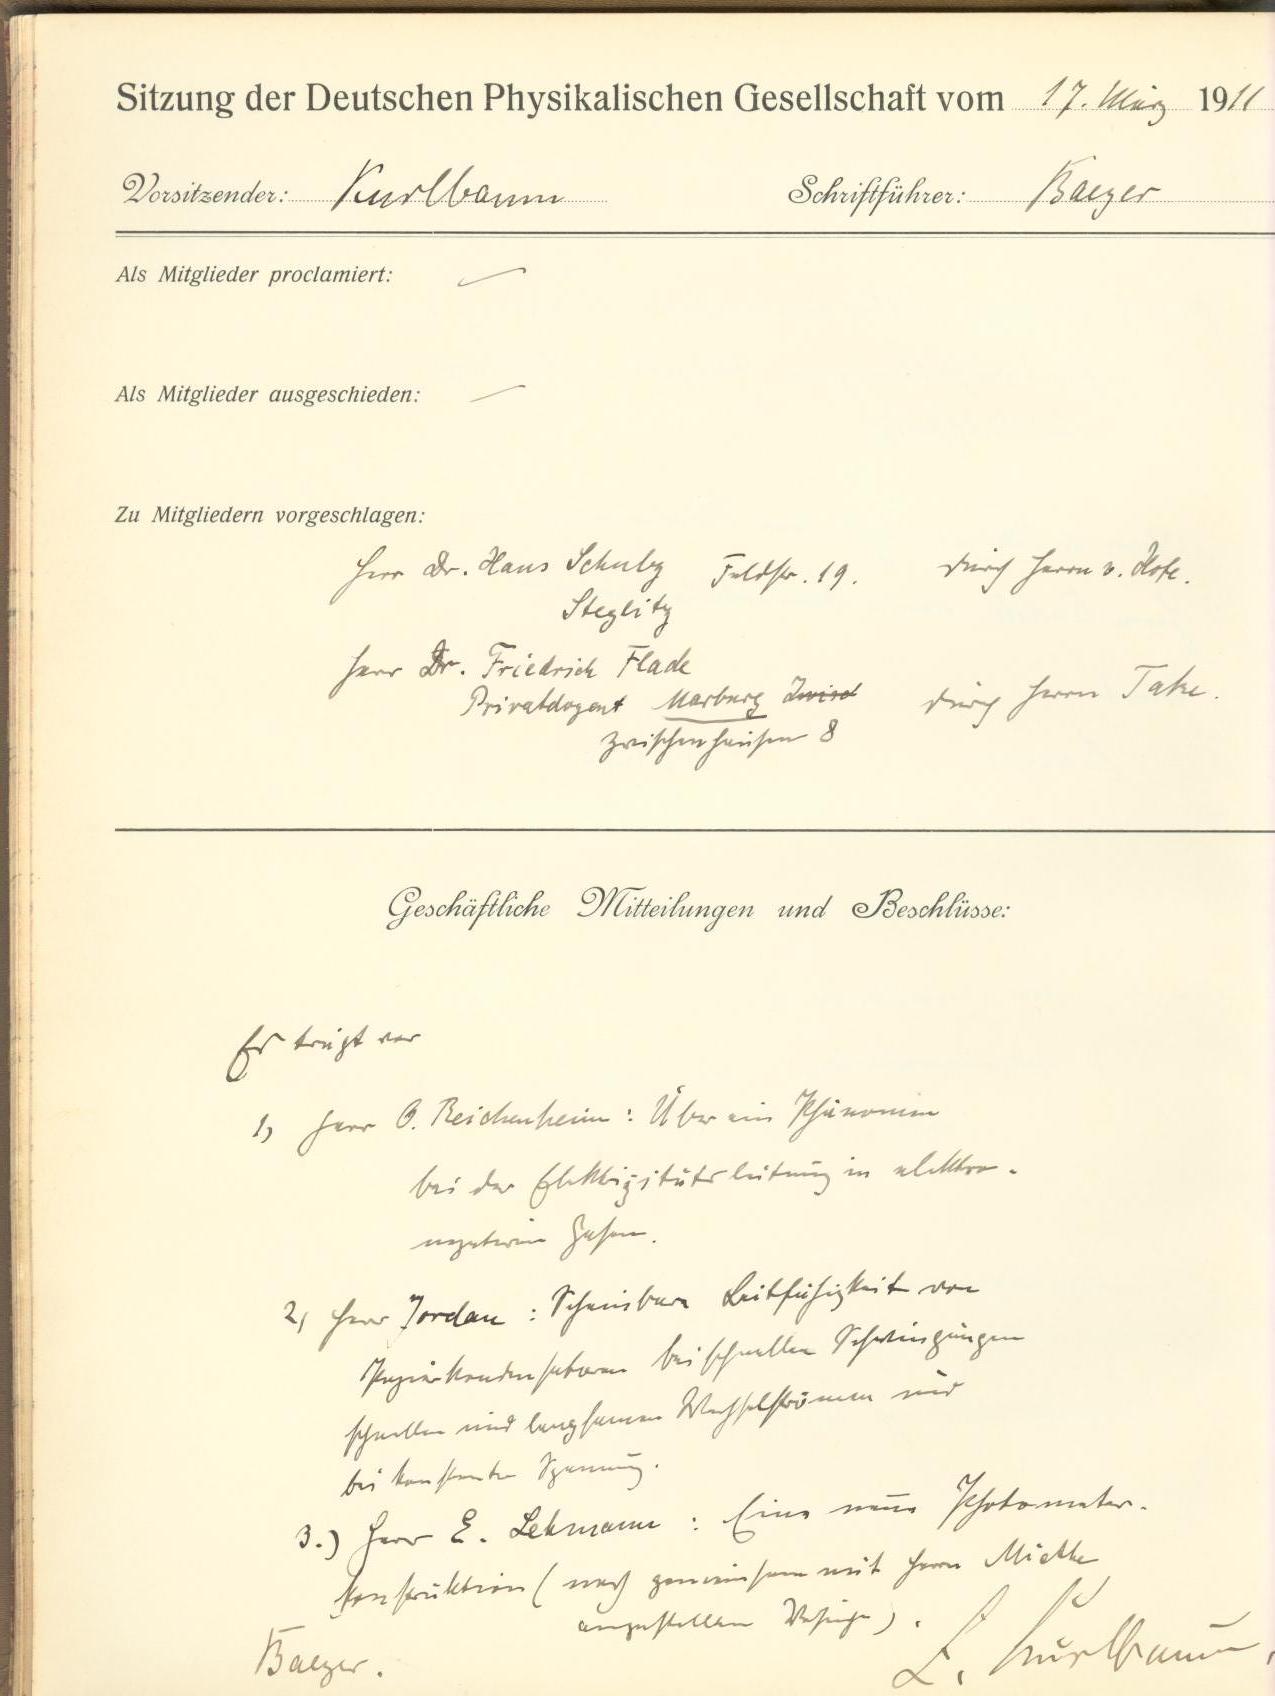 Sitzung der Deutschen Physikalischen Gesellschaft vom 17. März 1911
Vorsitzender: Kurlbaum Schriftführer: Baeyer
Als Mitglieder proclamiert: —
Als Mitglieder ausgeschieden: —
Zu Mitgliedern vorgeschlagen:
Herr Dr. Hans Schulz Feldstr. 19. durch Herrn v. Hofe.
Steglitz
Herr Dr. Friedrich Flade
Privatdozent Marburg Zwisch durch Herrn Take.
Zwischenhausen 8
Geschäftliche Mitteilungen und Beschlüsse:
Es trägt vor
1, Herr O. Reichenheim: Über ein Phänomen
bei der Elektrizitätsleitung in elektro-
negativen Gasen.
2, Herr Jordan: Scheinbare Leitfähigkeit von
Papierkondensatoren bei schnellen Schwingungen
schnellen und langsamen Wechselströmen und
bei konstanter Spannung.
3.) Herr E. Lehmann: Eine neue Photometer-
konstruktion (nach gemeinsam mit Herrn Miethe
angestellten Versuchen).
Baeyer. F. Kurlbaum.